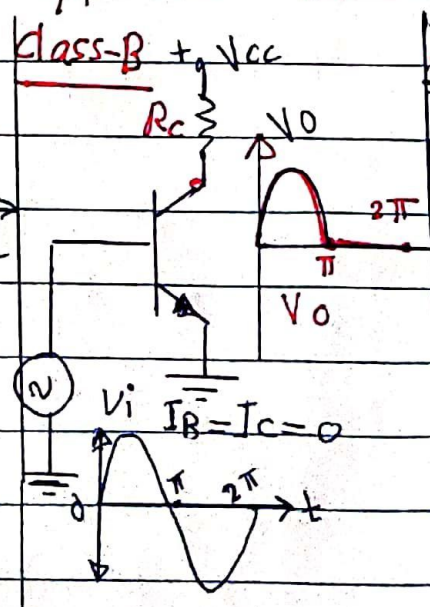 Class-B + Vcc
Rc
VO
2π
π
VO
Vi
IB=Ic=0
0
π
2π
t